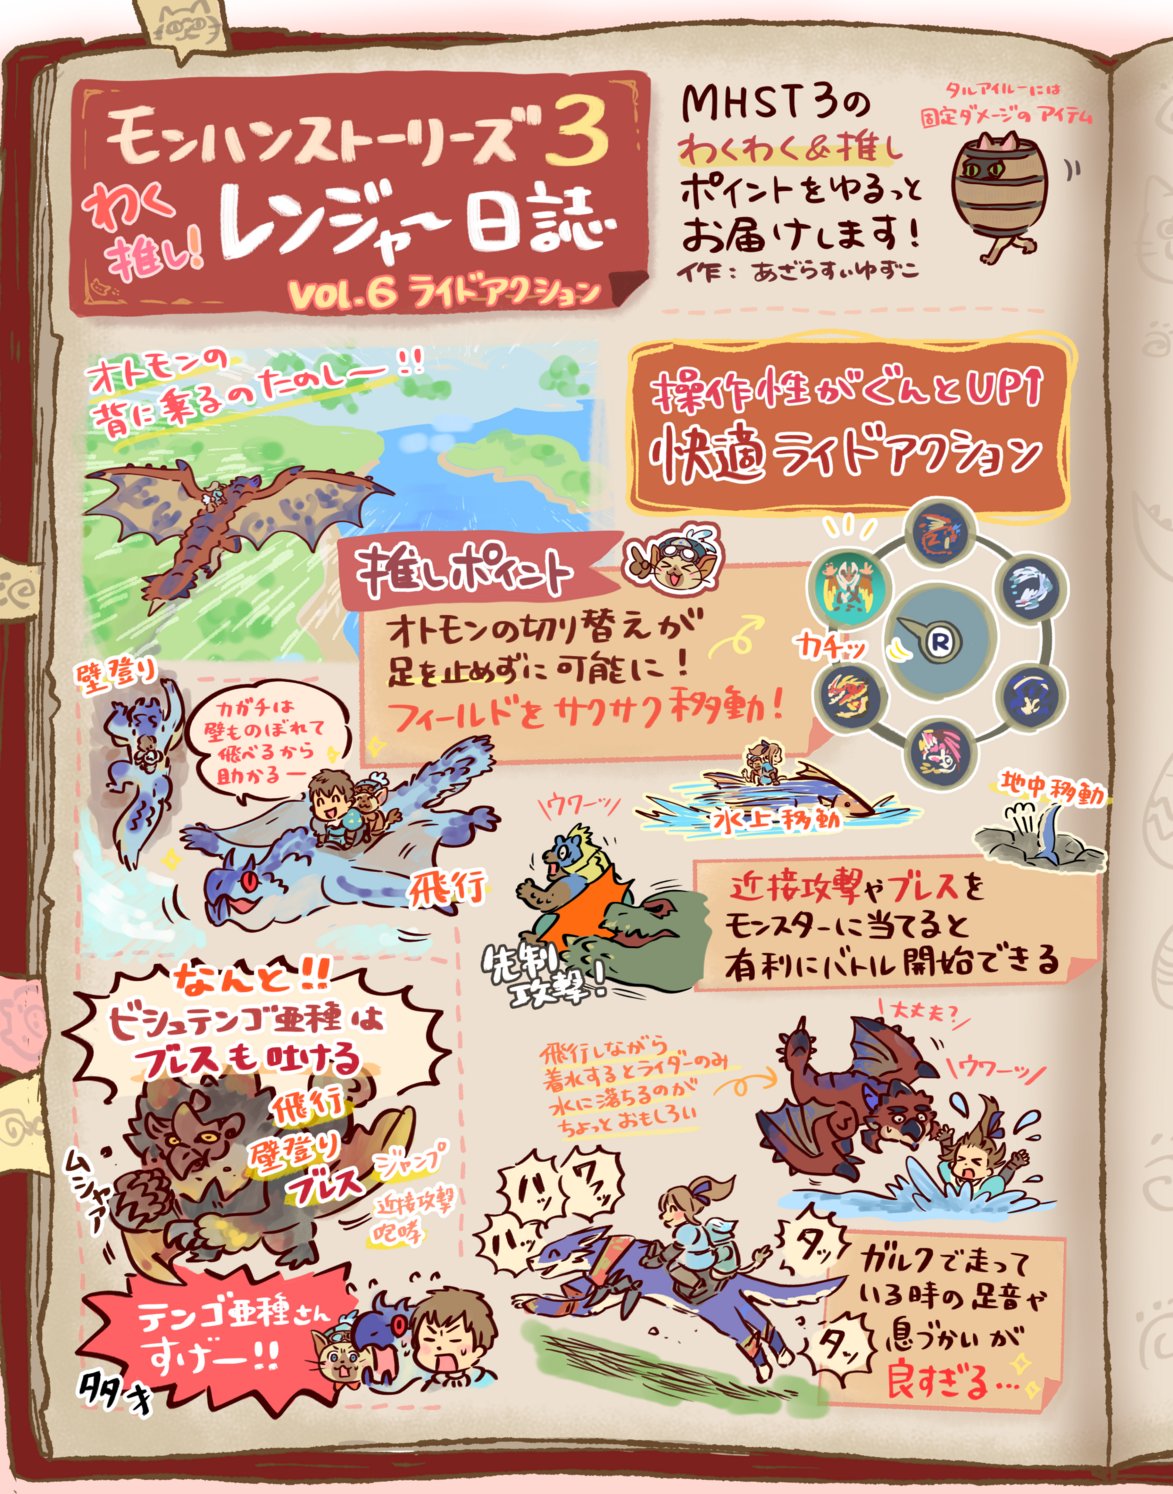 モンハンストーリーズ3
わく
推し!
レンジャー日誌
VOL.6 ライドアクション
MHST3の
わくわく&推し
ポイントをゆるっと
お届けします!
作:あざらすぃゆずこ
タルアイルーには
固定ダメージのアイテム
オトモンの
背に乗るのたのしー!!
操作性がぐんとUP↑
快適ライドアクション
推しポイント
オトモンの切り替えが
足を止めずに可能に!
フィールドをサクサク移動!
カチッ
R
壁登り
カガチは
壁ものぼれて
飛べるから
助かるー
飛行
水上移動
地中移動
ウワーッ
先制
攻撃!
近接攻撃やブレスを
モンスターに当てると
有利にバトル開始できる
なんと!!
ビシュテンゴ亜種は
ブレスも吐ける
飛行
壁登り
ブレス
ジャンプ
近接攻撃
咆哮
ムシャァ
テンゴ亜種さん
すげー!!
タタキ
飛行しながら
着水するとライダーのみ
水に落ちるのが
ちょっとおもしろい
大丈夫?
ウワーッ
ハッ
ハッ
ワッ
タッ
タッ
ガルクで走って
いる時の足音や
息づかいが
良すぎる…